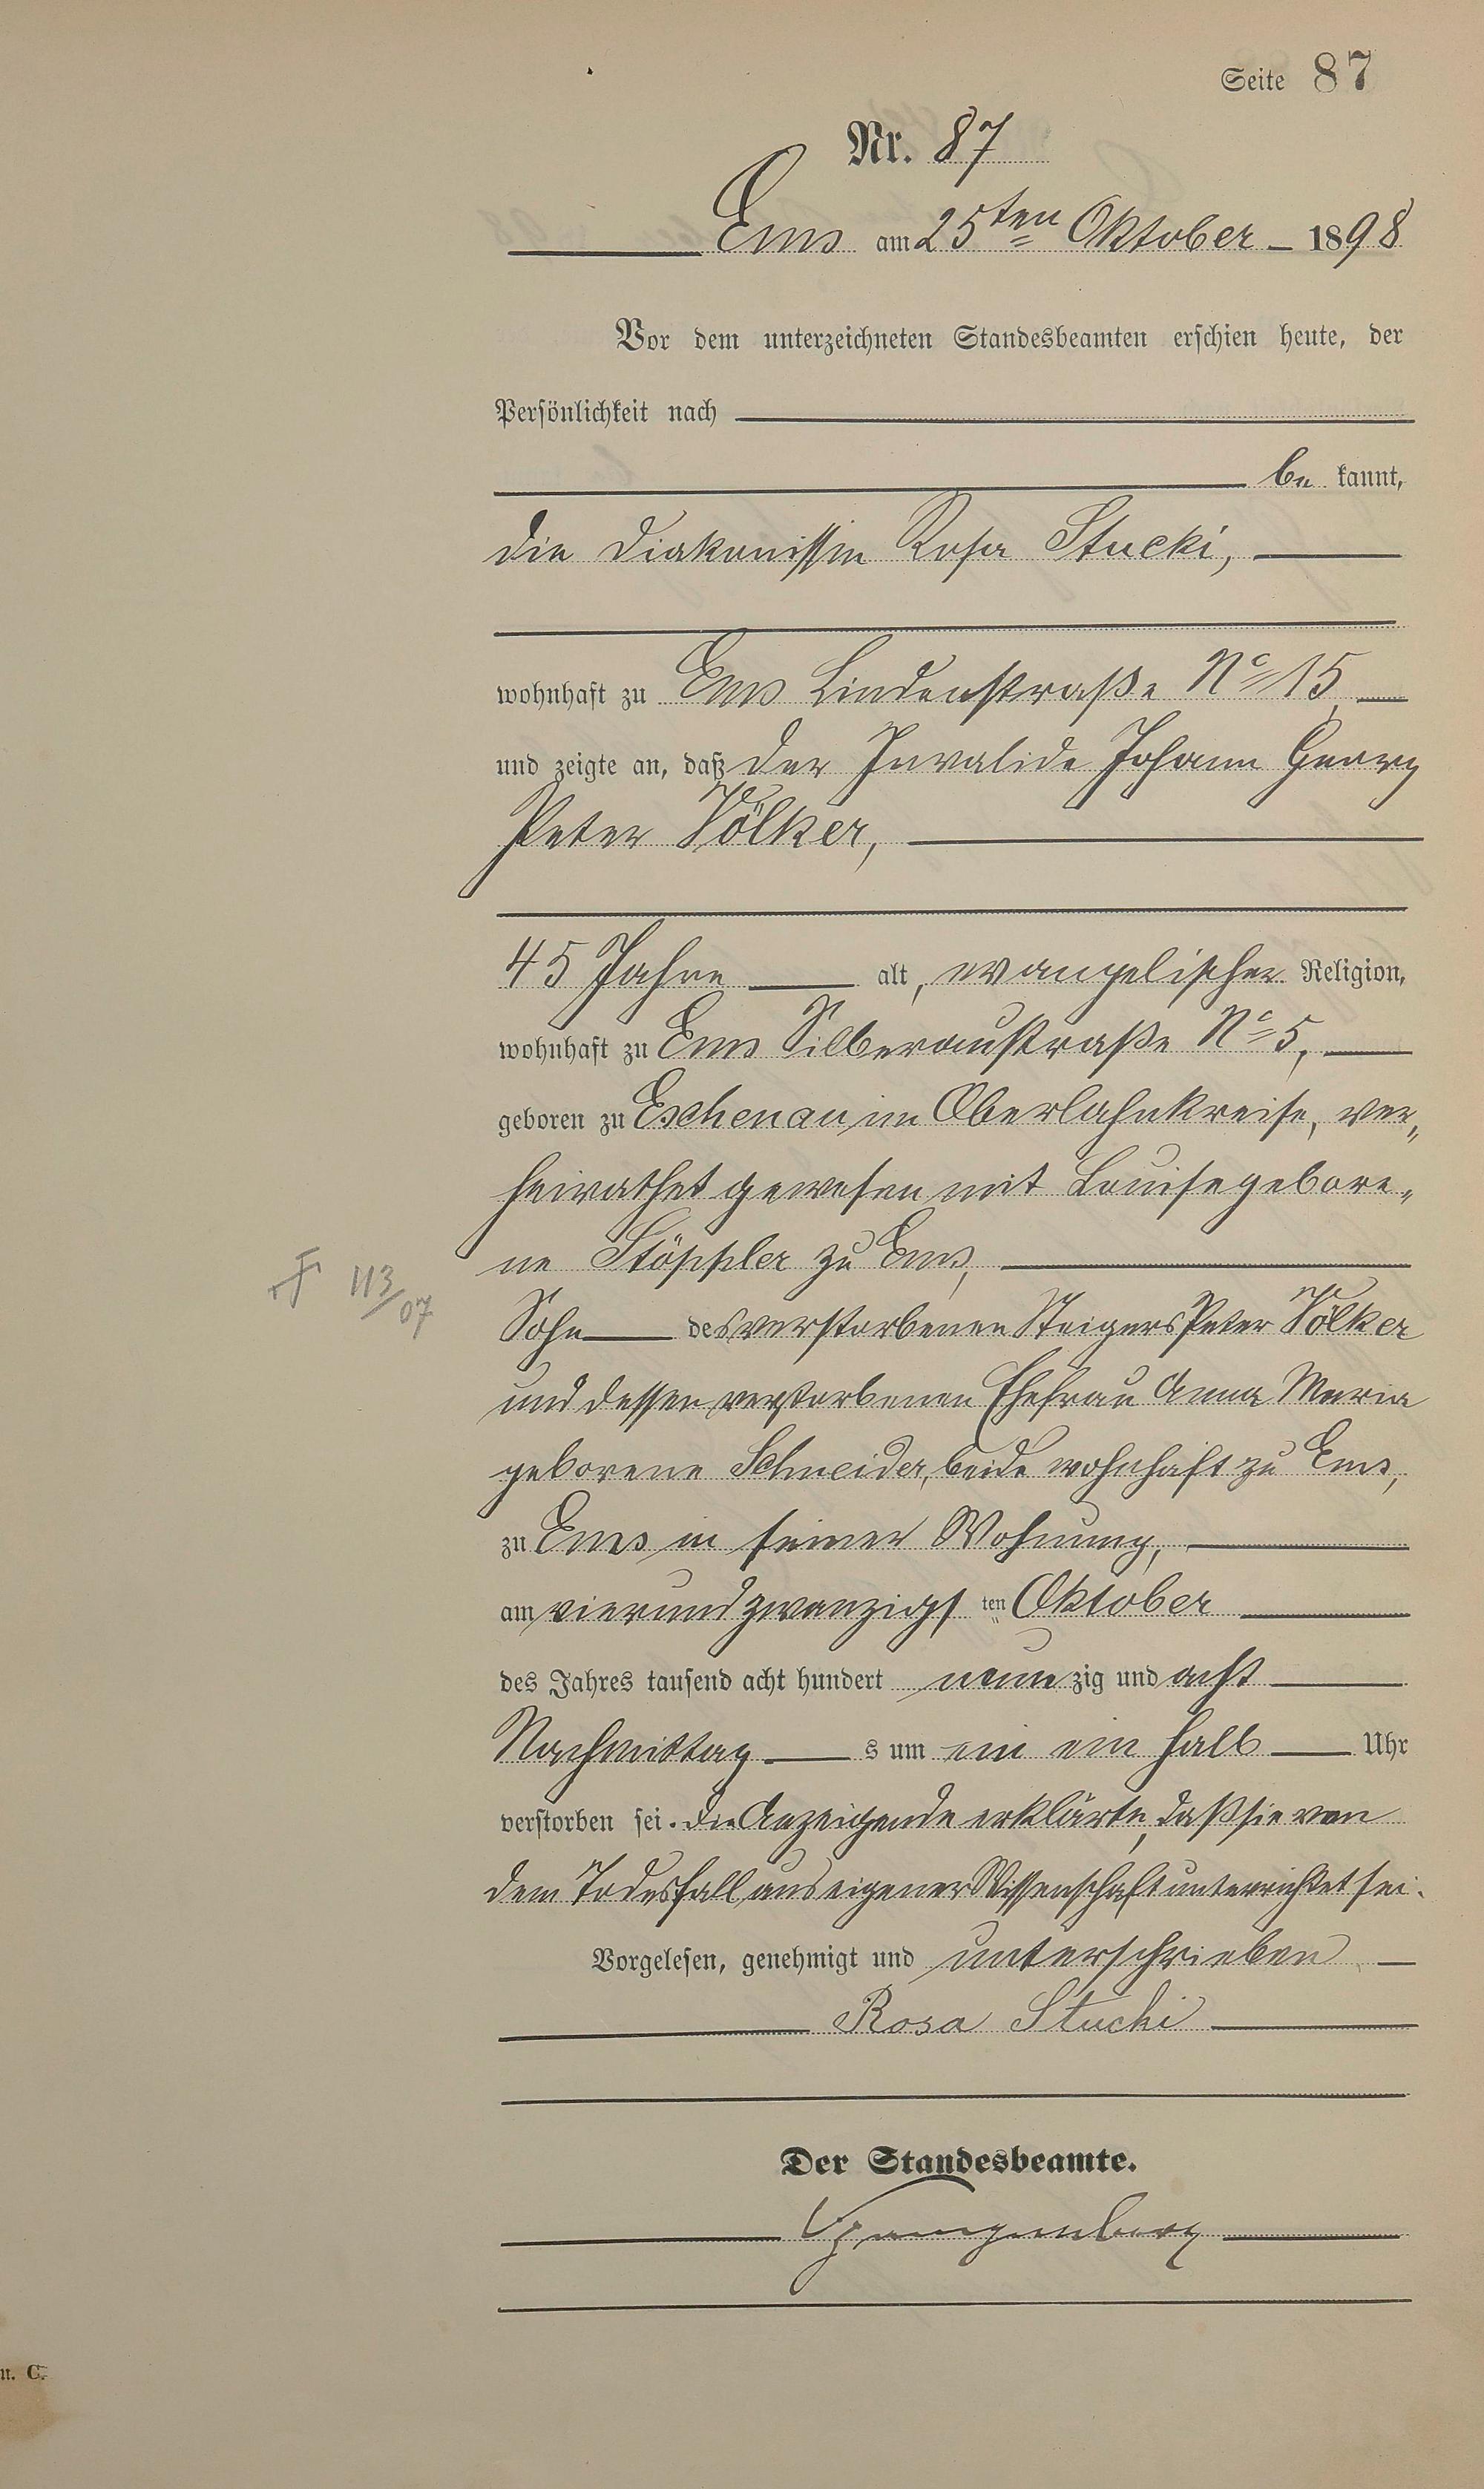 Seite 87
Nr. 87
Ems am 25ten Oktober 1898
Vor dem unterzeichneten Standesbeamten erschien heute, der
Persönlichkeit nach
be kannt,
die Diakonissin Rosa Stucki,
wohnhaft zu Ems Lindenstraße No 15,
und zeigte an, daß der Invalide Johann Georg
Peter Völker,
45 Jahre alt, evangelischer Religion,
wohnhaft zu Ems Silberaustraße No 5,
geboren zu Eschenau im Oberlahnkreise, ver„
heirathet gewesen mit Louise gebore„
ne Stöppler zu Ems,
Sohn des verstorbenen Steigers Peter Völker
und dessen verstorbenen Ehefrau Anna Maria
geborene Schneider, beide wohnhaft zu Ems,
zu Ems in seiner Wohnung,
am vierundzwanzigs ten Oktober
des Jahres tausend acht hundert neun zig und acht
Nachmittag s um ein ein halb Uhr
verstorben sei. Die Anzeigende erklärte, daß sie von
dem Todesfall aus eigener Wissenschaft unterrichtet sei.
Vorgelesen, genehmigt und unterschrieben
Rosa Stucki
Der Standesbeamte.
Spangenberg
113/07
n. C.